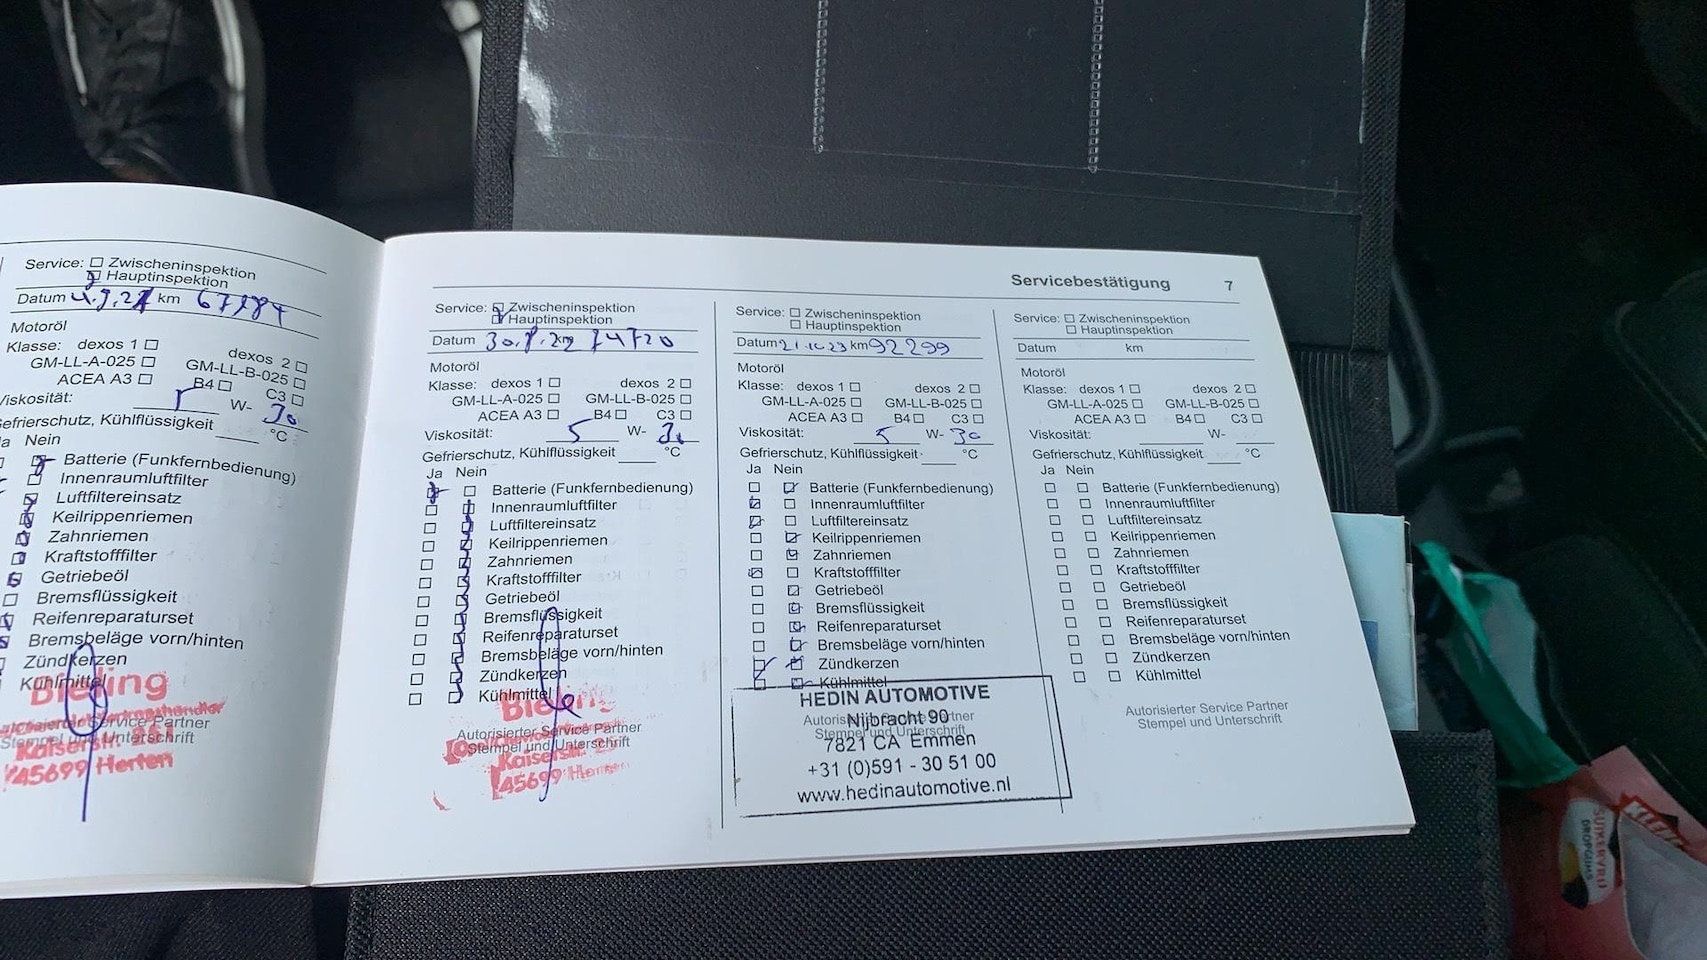 Service: Zwischeninspektion
Hauptinspektion
Datum km
Motoröl
Klasse: dexos 1 dexos 2
GM-LL-A-025 GM-LL-B-025
ACEA A3 B4 C3
Viskosität: W- 30
Gefrierschutz, Kühlflüssigkeit °C
Ja Nein
Batterie (Funkfernbedienung)
Innenraumluftfilter
Luftfiltereinsatz
Keilrippenriemen
Zahnriemen
Kraftstofffilter
Getriebeöl
Bremsflüssigkeit
Reifenreparaturset
Bremsbeläge vorn/hinten
Zündkerzen
Kühlmittel
Bieling
Autorisierter Service Partner
Stempel und Unterschrift
Kaiserstr.
45699 Herten
Servicebestätigung 7
Service: Zwischeninspektion
Hauptinspektion
Datum km 74720
Motoröl
Klasse: dexos 1 dexos 2
GM-LL-A-025 GM-LL-B-025
ACEA A3 B4 C3
Viskosität: 5 W- 30
Gefrierschutz, Kühlflüssigkeit °C
Ja Nein
Batterie (Funkfernbedienung)
Innenraumluftfilter
Luftfiltereinsatz
Keilrippenriemen
Zahnriemen
Kraftstofffilter
Getriebeöl
Bremsflüssigkeit
Reifenreparaturset
Bremsbeläge vorn/hinten
Zündkerzen
Kühlmittel
Bieling
Autorisierter Service Partner
Stempel und Unterschrift
Kaiserstr.
45699 Herten
Service: Zwischeninspektion
Hauptinspektion
Datum 21.10.23 km 92299
Motoröl
Klasse: dexos 1 dexos 2
GM-LL-A-025 GM-LL-B-025
ACEA A3 B4 C3
Viskosität: 5 W- 30
Gefrierschutz, Kühlflüssigkeit °C
Ja Nein
Batterie (Funkfernbedienung)
Innenraumluftfilter
Luftfiltereinsatz
Keilrippenriemen
Zahnriemen
Kraftstofffilter
Getriebeöl
Bremsflüssigkeit
Reifenreparaturset
Bremsbeläge vorn/hinten
Zündkerzen
Kühlmittel
HEDIN AUTOMOTIVE
Autorisierter Service Partner
Nijbracht 90
Stempel und Unterschrift
7821 CA Emmen
+31 (0)591 - 30 51 00
www.hedinautomotive.nl
Service: Zwischeninspektion
Hauptinspektion
Datum km
Motoröl
Klasse: dexos 1 dexos 2
GM-LL-A-025 GM-LL-B-025
ACEA A3 B4 C3
Viskosität: W-
Gefrierschutz, Kühlflüssigkeit °C
Ja Nein
Batterie (Funkfernbedienung)
Innenraumluftfilter
Luftfiltereinsatz
Keilrippenriemen
Zahnriemen
Kraftstofffilter
Getriebeöl
Bremsflüssigkeit
Reifenreparaturset
Bremsbeläge vorn/hinten
Zündkerzen
Kühlmittel
Autorisierter Service Partner
Stempel und Unterschrift
SUIKERVRIJ
DROPGUMS